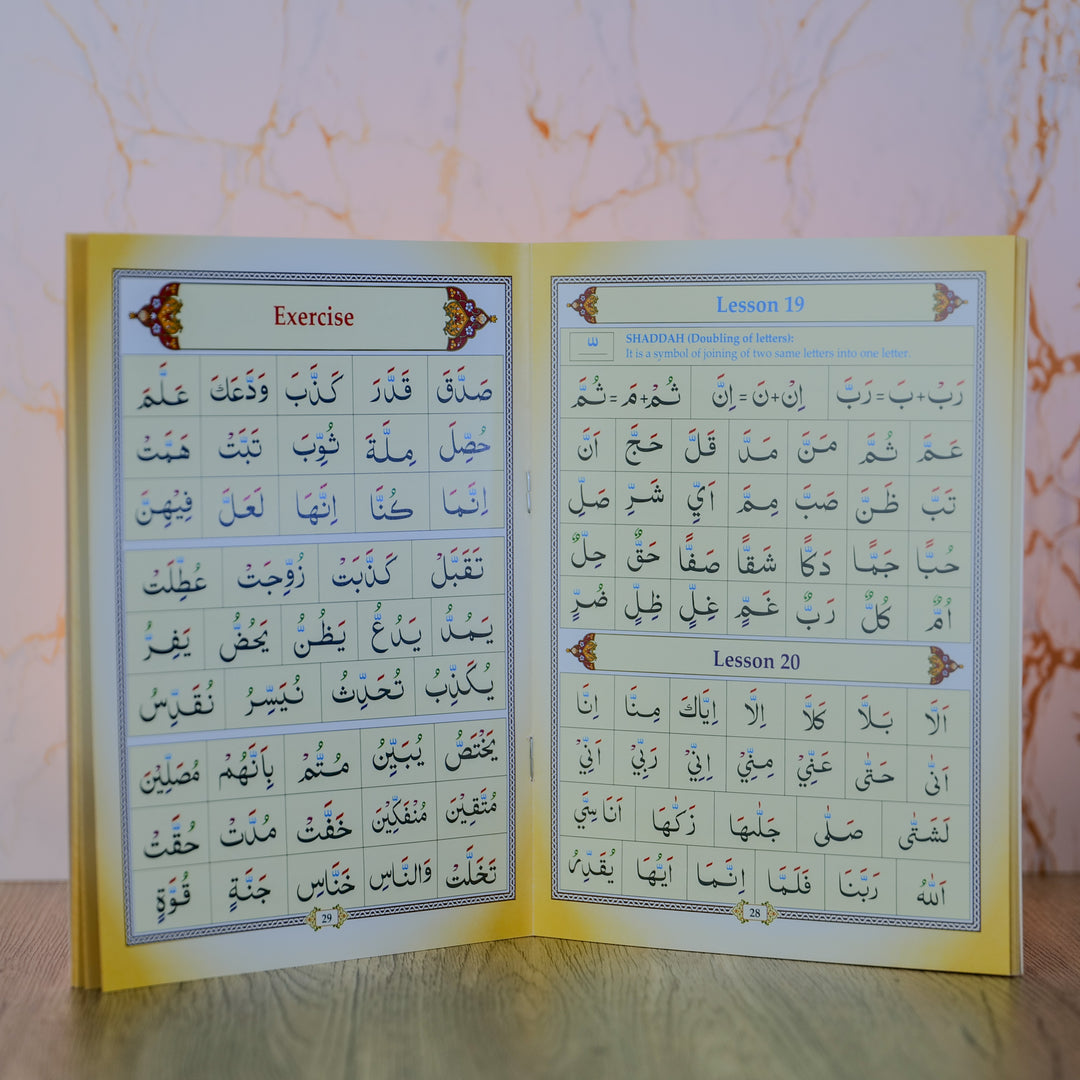 Lesson 19
SHADDAH (Doubling of letters):
It is a symbol of joining of two same letters into one letter.
رَبْ+بَ=رَبَّ اِنْ+نَ=اِنَّ ثُمْ+مَ=ثُمَّ
عَمَّ ثُمَّ مَنَّ مَدَّ قَلَّ حَجَّ اَنَّ
تَبَّ ظَنَّ صَبَّ مِمَّ اَيِّ شَرِّ صَلِّ
حُبًّا جَمًّا دَكًّا شَقًّا صَفًّا حَقٌّ حِلٌّ
اُمٌّ كُلٌّ رَبٌّ غَمٍّ غِلٍّ ظِلٍّ ضُرٍّ
Lesson 20
اَلَّا بَلَّا كَلَّا اِلَّا اِيَّاكَ مِنَّا اِنَّا
اَنّٰى حَتّٰى عَنِّيْ مِنِّيْ اِنِّيْ رَبِّيْ اَنِّيْ
لَشَتّٰى صَلّٰى جَلّٰىهَا زَكّٰهَا
اَللّٰهُ رَبَّنَا فَلَمَّا اِنَّمَا اَيُّهَا يُقَدِّرُ
28
Exercise
صَدَّقَ قَدَّرَ كَذَّبَ وَدَّعَكَ عَلَّمَ
حُصِّلَ مِلَّةَ ثُوِّبَ تَبَّتْ هَمَّتْ
اِنَّمَا كُنَّا اِنَّهَا لَعَلَّ فِيْهِنَّ
تَقَبَّلْ كَذَّبَتْ زُوِّجَتْ عُطِّلَتْ
يَمُدُّ يَدُعُّ يَظُنُّ يَحُضُّ يَفِرُّ
يُكَذِّبُ تُحَدِّثُ نُيَسِّرُ نُقَدِّسُ
يَخْتَصُّ يُبَيِّنُ مُتُّمْ بِاَنَّهُمْ مُصَلِّيْنَ
مُتَّقِيْنَ مُنْفَكِّيْنَ خَفَّتْ مُدَّتْ حُقَّتْ
تَخَلَّتْ وَالنَّاسِ خَنَّاسِ جَنَّةٍ قُوَّةٍ
29